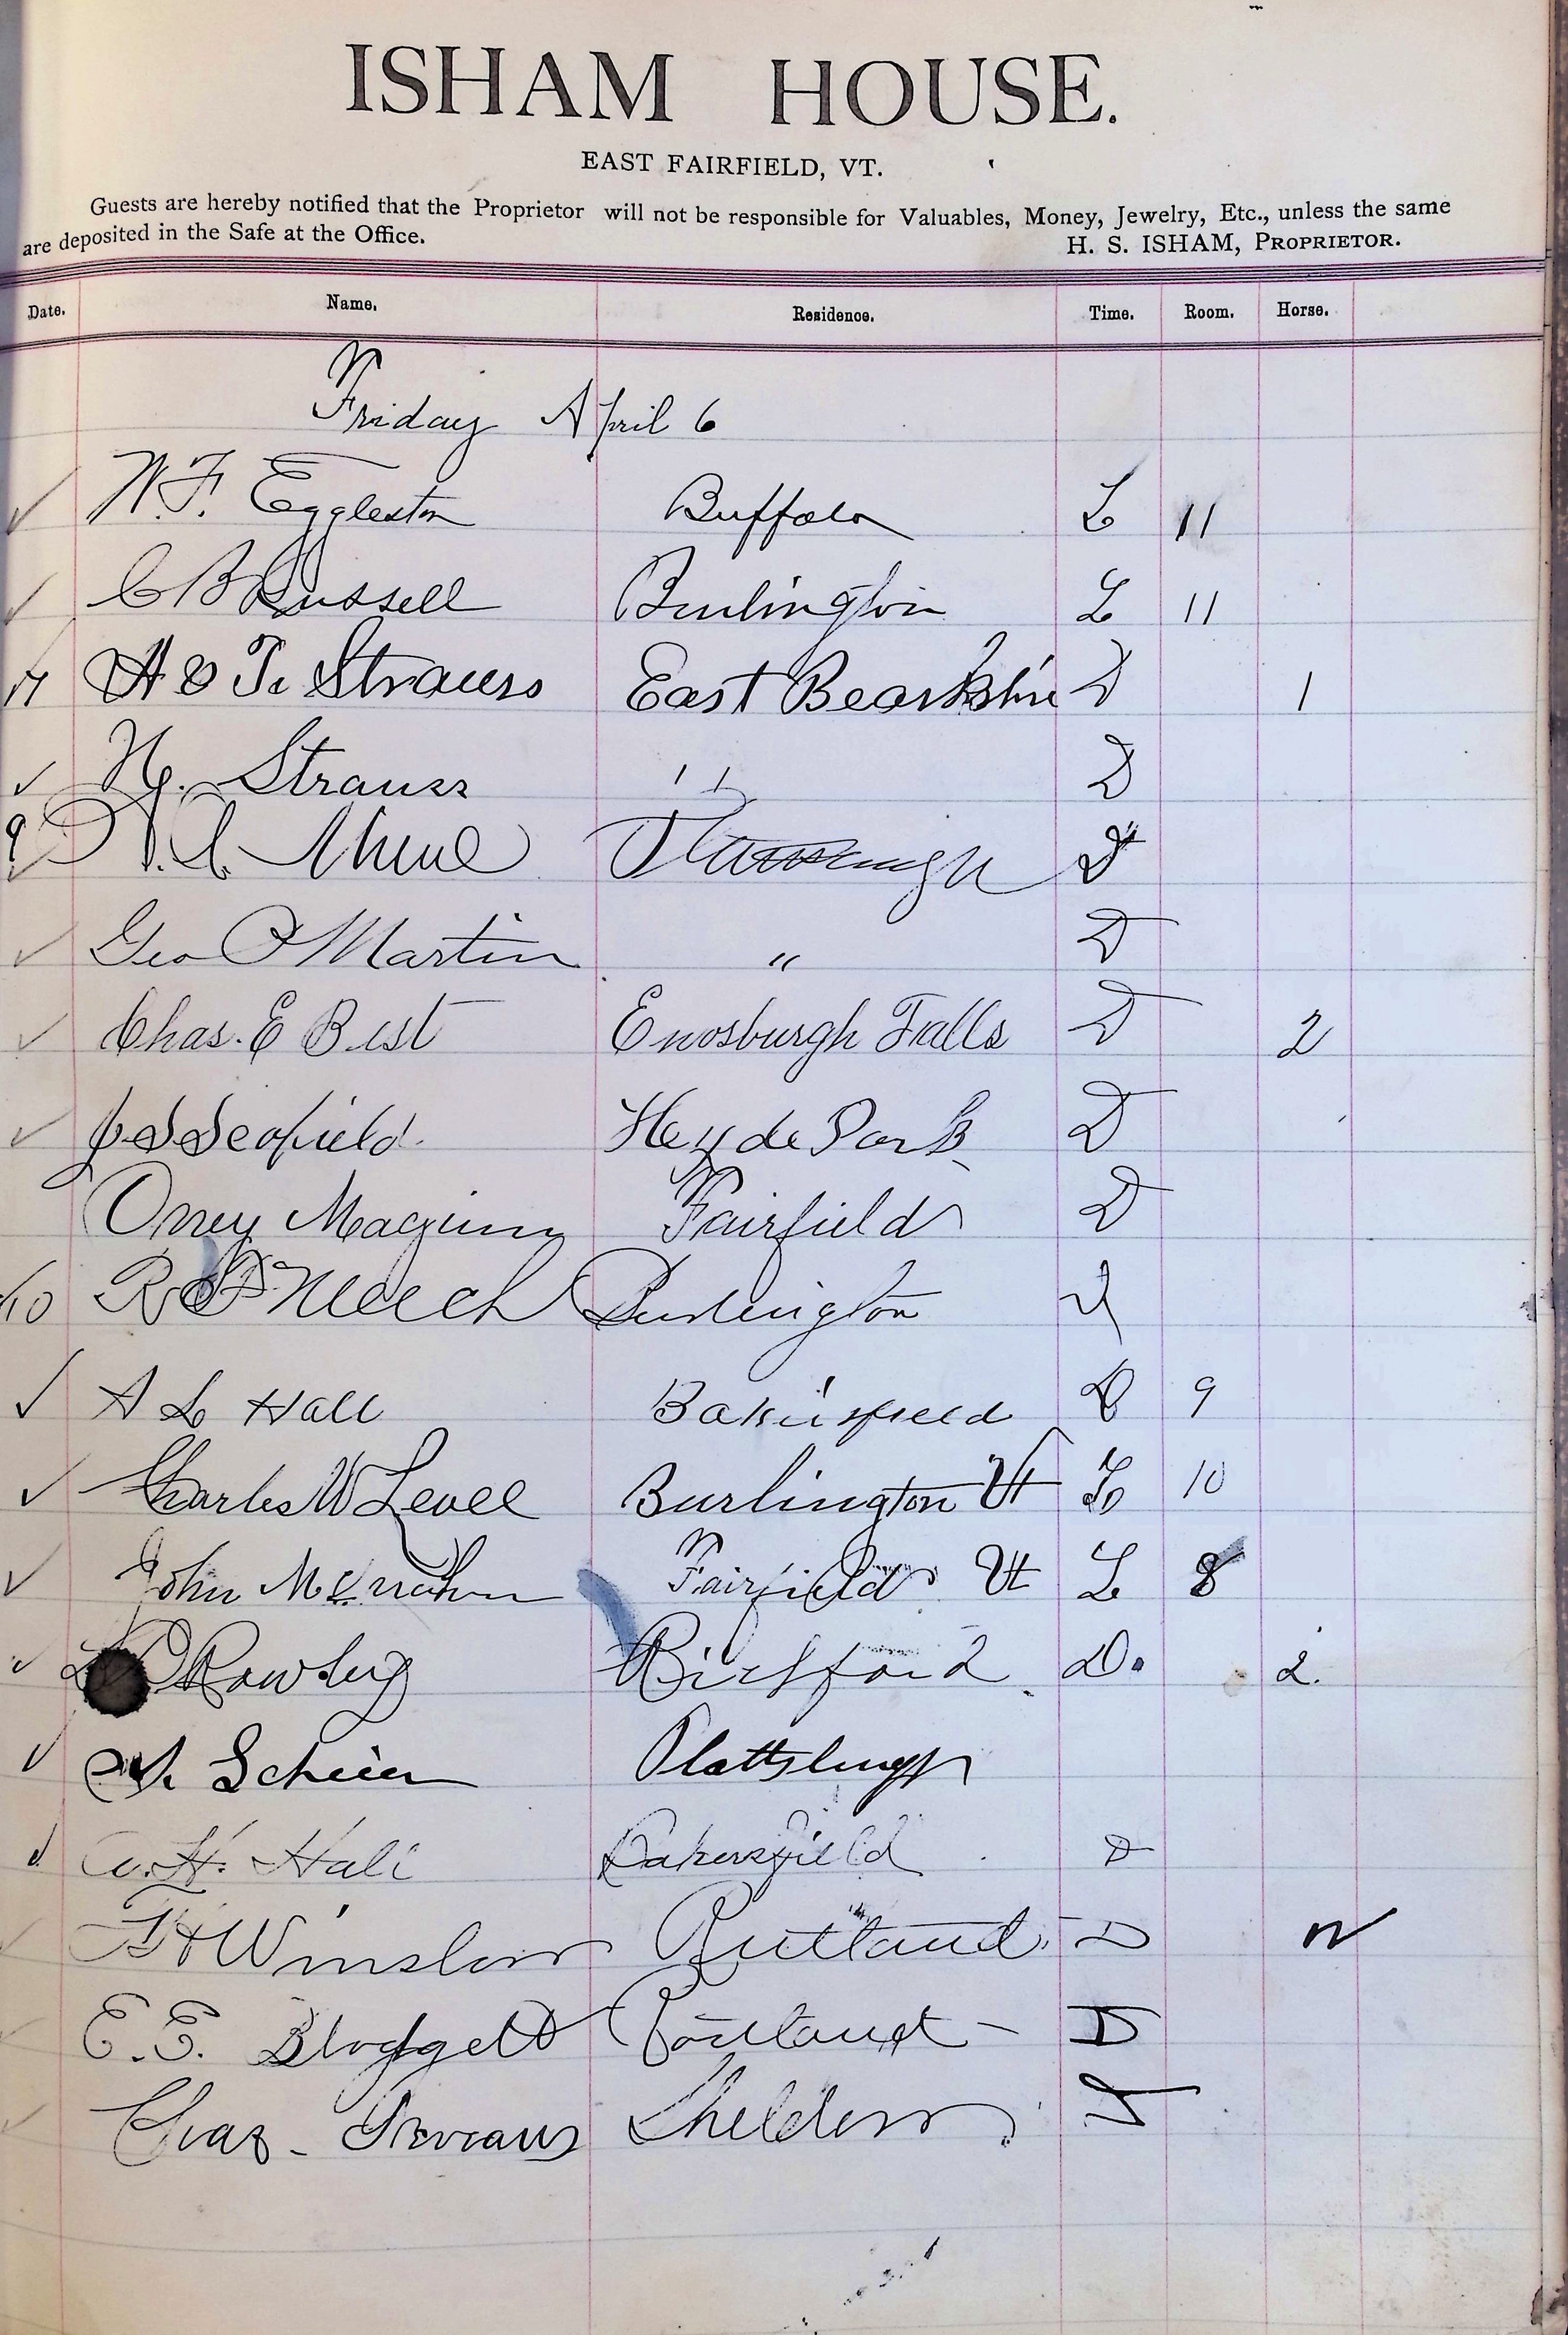 ISHAM HOUSE.
EAST FAIRFIELD, VT.
Guests are hereby notified that the Proprietor will not be responsible for Valuables, Money, Jewelry, Etc., unless the same
are deposited in the Safe at the Office. H. S. ISHAM, PROPRIETOR.
Date. Name. Residence. Time. Room. Horse.
Friday April 6
W. F. Eggleston Buffalo L 11
C B Russell Burlington L 11
H & T. Strauss East Bearkshire D 1
H. Strauss " D
D
Geo P Martin " D
Chas. E Best Enosburgh Falls D 2
J S Scofield Heyde Park D
Orrey Maginn Fairfield D
10 R Meech Burlington
A L Hall Bakersfield D 9
Charles W Level Burlington Vt L 10
John Fairfield Vt L 8
Rowley Richford D. 2.
Scheier Plattsburgh
A. H. Hall Bakersfield D
F H Winslow Rutland D
E. E. Blodgett Portland - D
Chas - Sheldon D